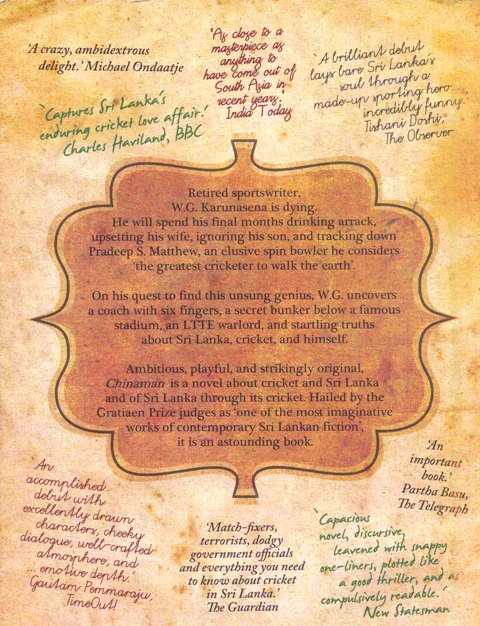 'A crazy, ambidextrous
delight.' Michael Ondaatje
'As close to a
masterpiece as
anything to
have come out of
South Asia in
recent years,'
India Today
'A brilliant debut
lays bare Sri Lanka's
soul through a
made-up sporting hero...,
incredibly funny.'
Tishani Doshi,
The Observer
'Captures Sri Lanka's
enduring cricket love affair.'
Charles Haviland, BBC
Retired sportswriter,
W.G. Karunasena is dying.
He will spend his final months drinking arrack,
upsetting his wife, ignoring his son, and tracking down
Pradeep S. Matthew, an elusive spin bowler he considers
'the greatest cricketer to walk the earth'.
On his quest to find this unsung genius, W.G. uncovers
a coach with six fingers, a secret bunker below a famous
stadium, an LTTE warlord, and startling truths
about Sri Lanka, cricket, and himself.
Ambitious, playful, and strikingly original,
Chinaman is a novel about cricket and Sri Lanka
and of Sri Lanka through its cricket. Hailed by the
Gratiaen Prize judges as 'one of the most imaginative
works of contemporary Sri Lankan fiction',
it is an astounding book.
'An
important
book.'
Partha Basu,
The Telegraph
'An
accomplished
debut with
excellently drawn
characters, cheeky
dialogue, well-crafted
atmosphere, and
... emotive depth.'
Gautam Pemmaraju,
TimeOut!
'Match-fixers,
terrorists, dodgy
government officials
and everything you need
to know about cricket
in Sri Lanka.'
The Guardian
'Capacious
novel, discursive,
leavened with snappy
one-liners, plotted like
a good thriller, and as
compulsively readable.'
New Statesman